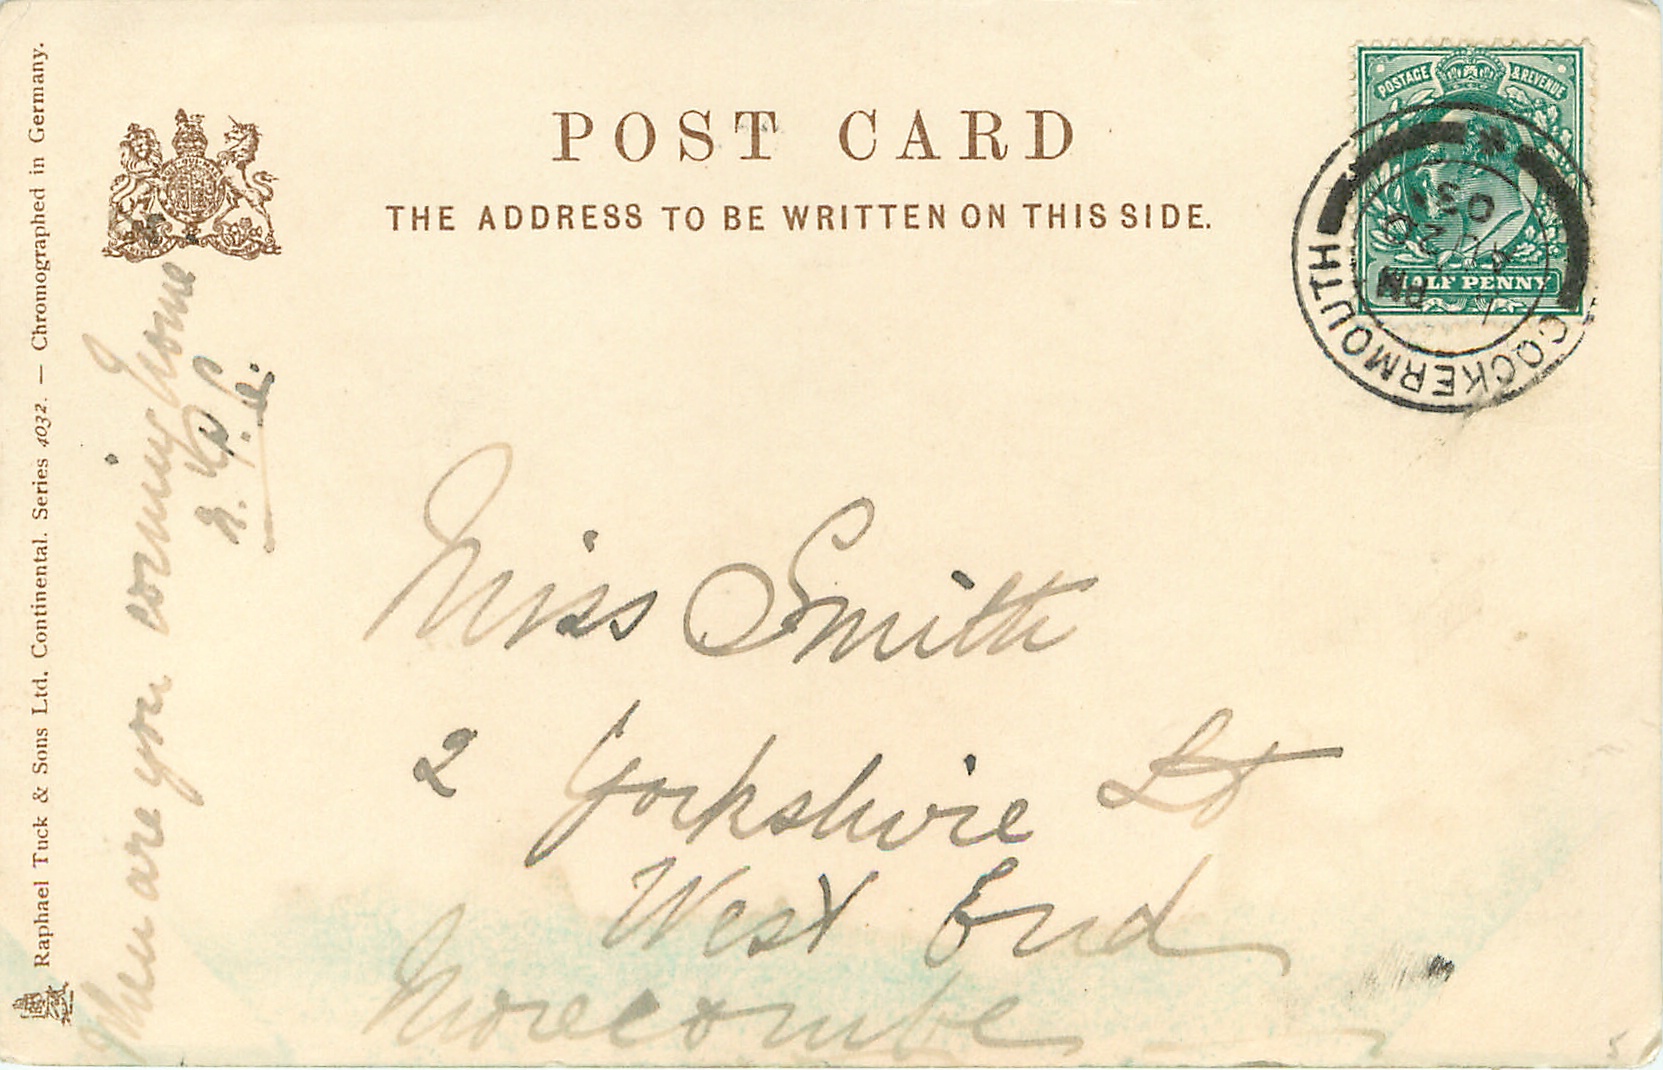 POST CARD
THE ADDRESS TO BE WRITTEN ON THIS SIDE.
POSTAGE & REVENUE
HALF PENNY
COCKERMOUTH
PM
AU 20
05
Raphael Tuck & Sons Ltd. Continental. Series 4032. — Chromographed in Germany.
When are you coming home
Miss Smith
2 Yorkshire St
West End
Morecambe